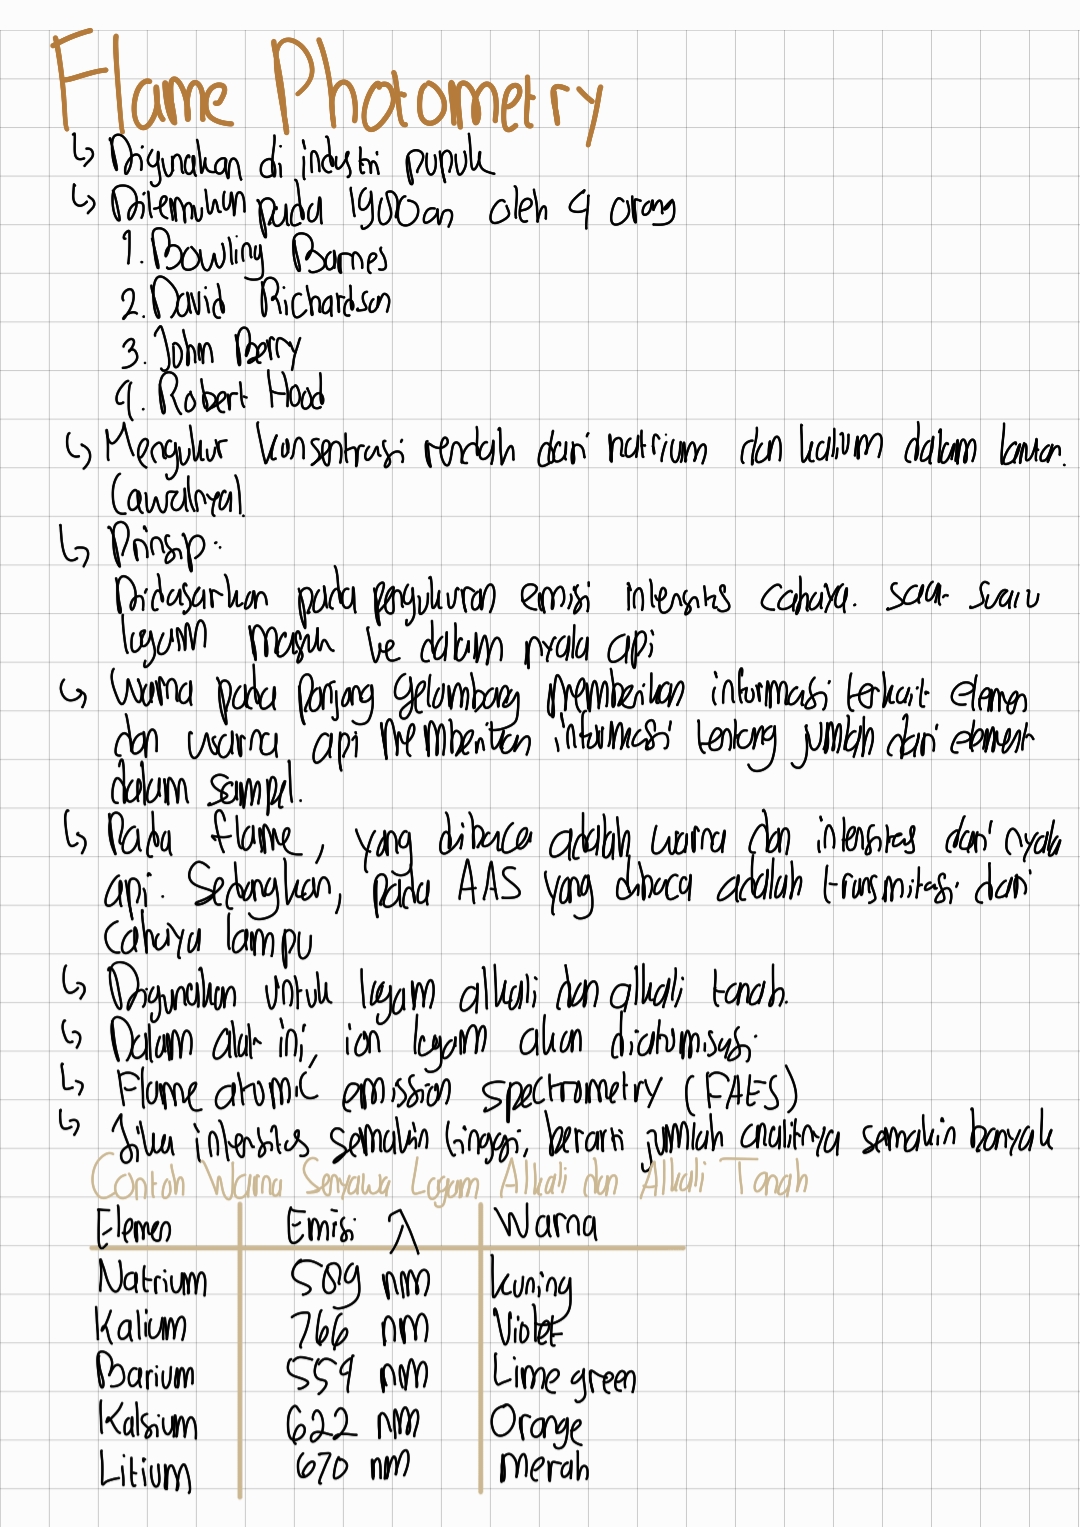 Flame Photometry
↳ Digunakan di industri pupuk
↳ Ditemukan pada 1980an oleh 4 orang
1. Bowling Barnes
2. David Richardson
3. John Berry
4. Robert Hood
↳ Mengukur konsentrasi rendah dari natrium dan kalium dalam larutan.
(awalnya).
↳ Prinsip:
Didasarkan pada pengukuran emisi intensitas cahaya. saat suatu
logam masuk ke dalam nyala api
↳ Warna pada panjang gelombang memberikan informasi terkait elemen
dan warna api memberikan informasi tentang jumlah dari element
dalam sampel.
↳ Pada flame, yang dibaca adalah warna dan intensitas dari nyala
api. Sedangkan, pada AAS yang dibaca adalah transmitasi dari
cahaya lampu
↳ Digunakan untuk logam alkali dan alkali tanah.
↳ Dalam alat ini, ion logam akan diatomisasi.
↳ Flame atomic emission spectrometry (FAES)
↳ Jika intensitas semakin tinggi, berarti jumlah analitnya semakin banyak
Contoh Warna Senyawa Logam Alkali dan Alkali Tanah
Elemen Emisi λ Warna
Natrium 589 nm kuning
Kalium 766 nm Violet
Barium 554 nm Lime green
Kalsium 622 nm Orange
Litium 670 nm merah